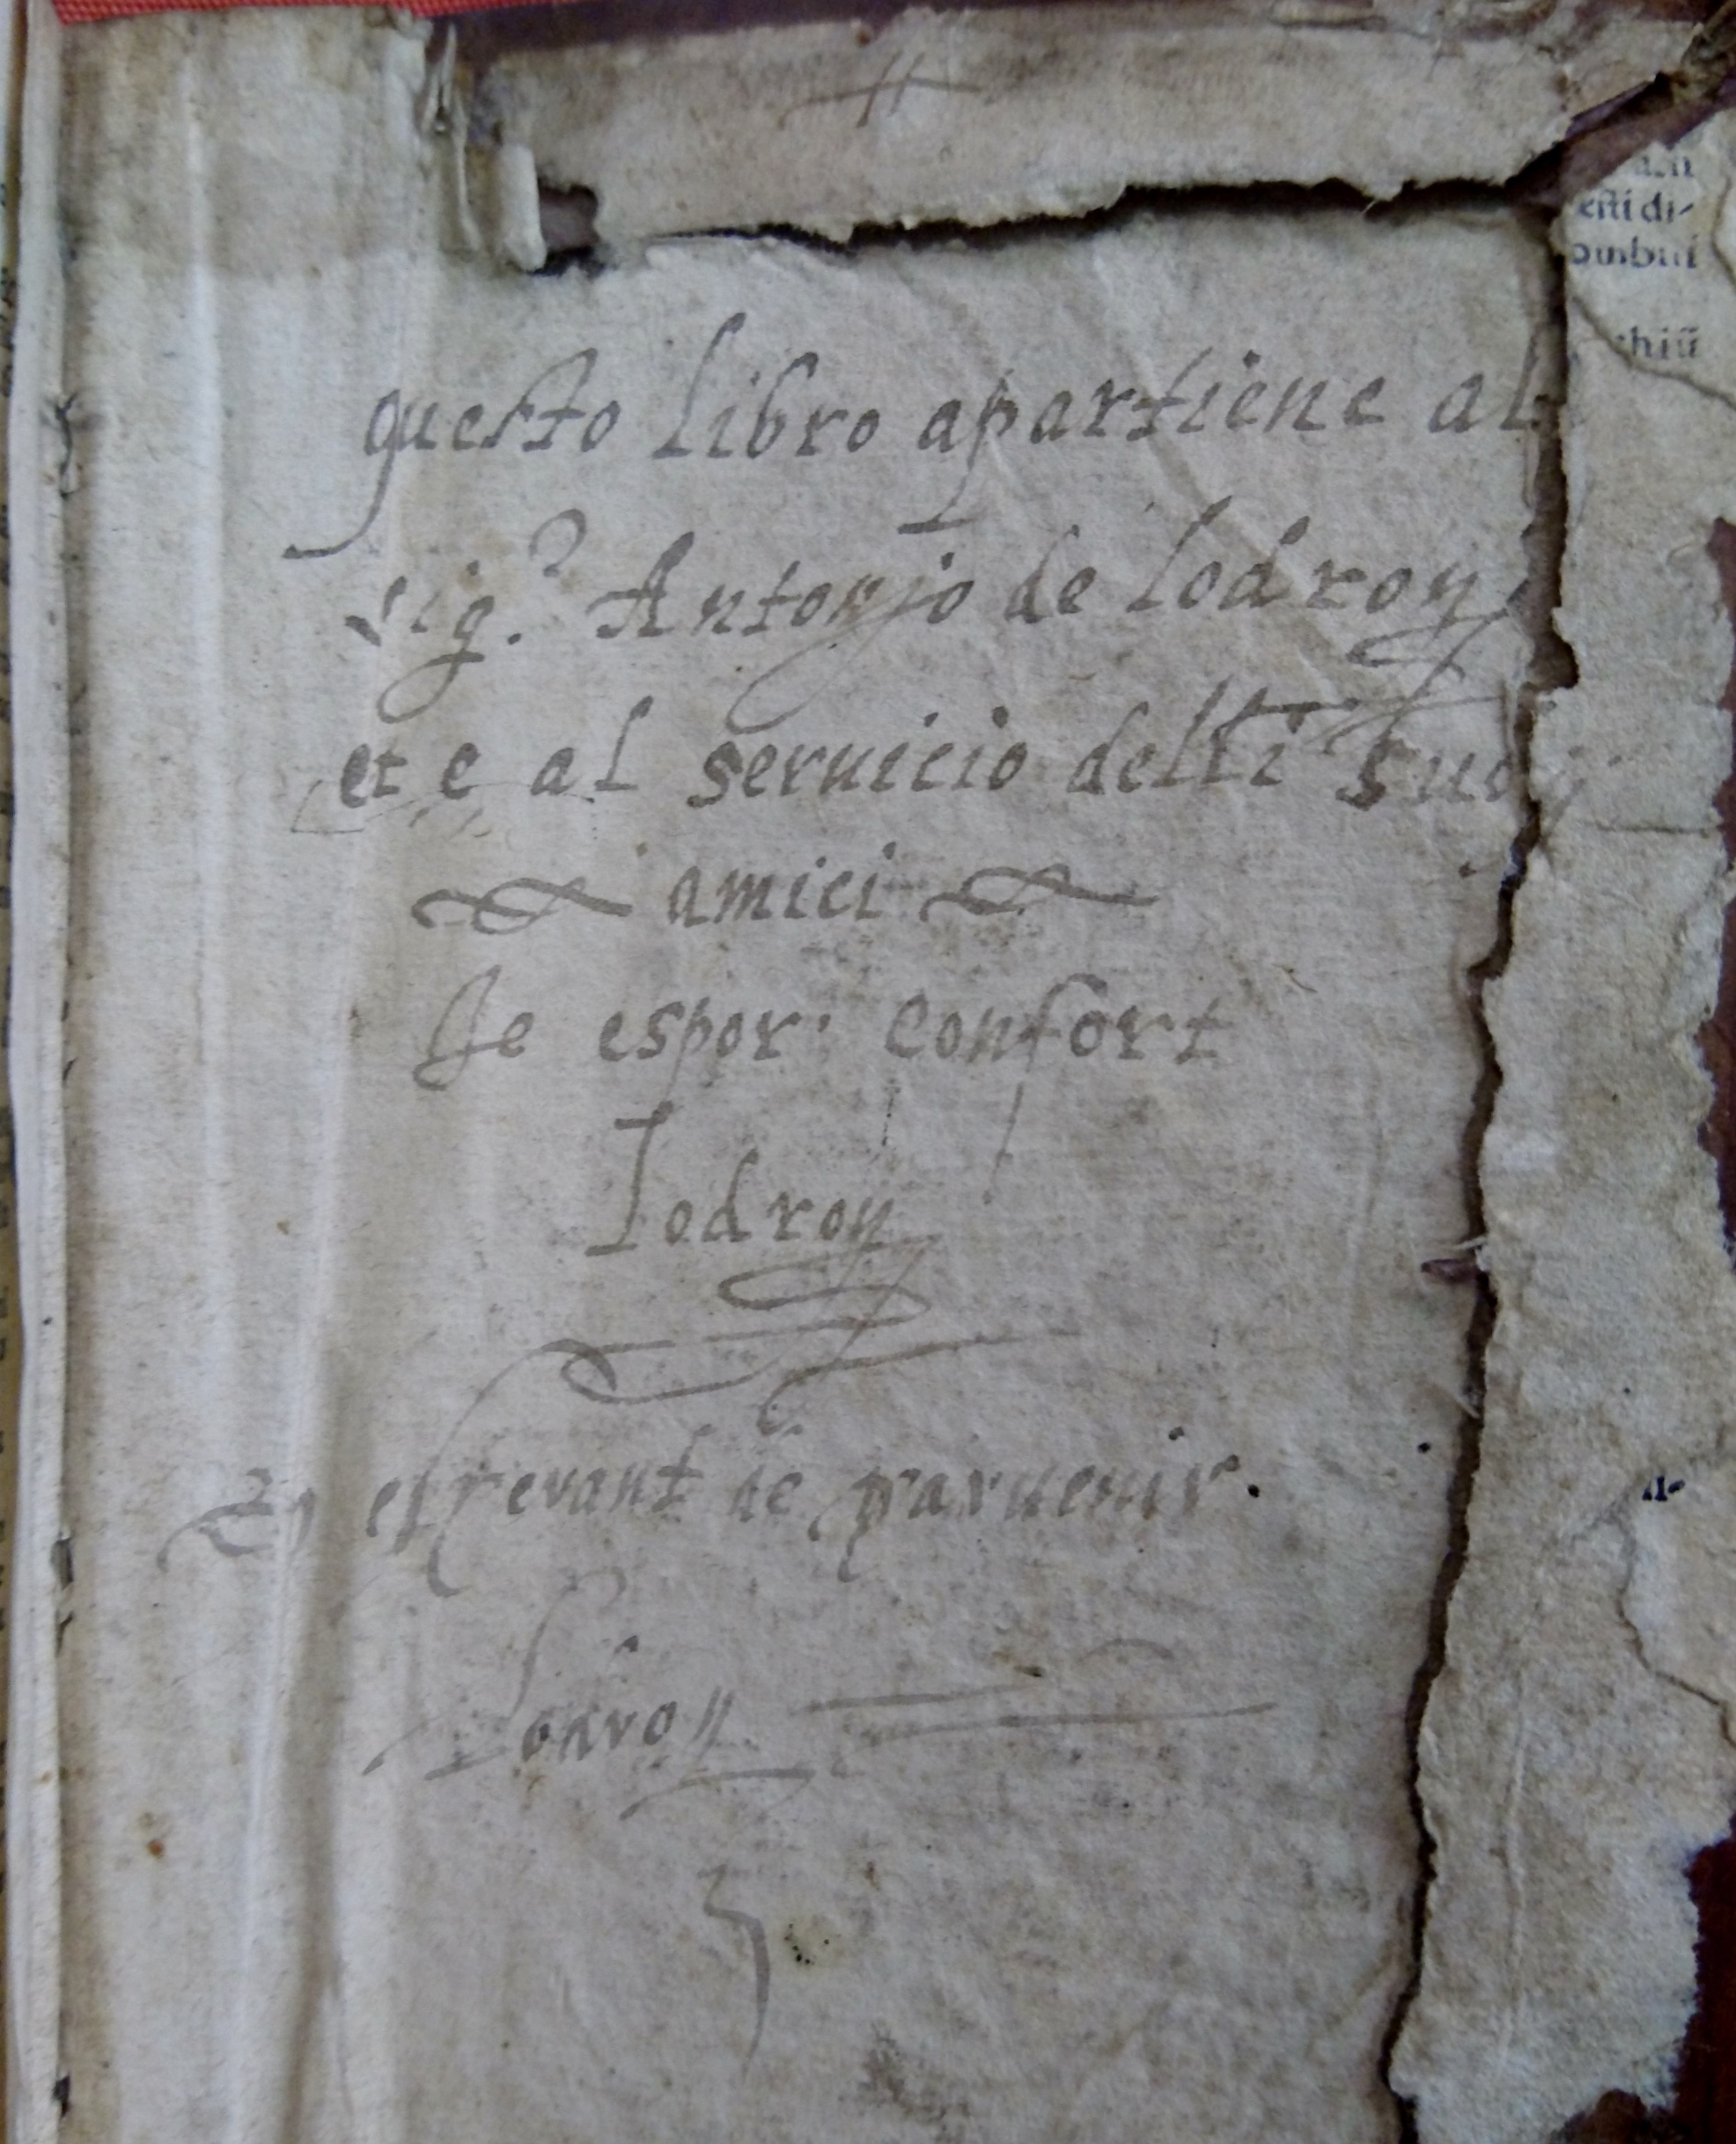 questo libro apartiene al
sig.r Antonjo de lodroy
et e al seruicio delli suoy
amici
Je espor confort
Lodroy
En esprevant de paruenir.
Lodroy
esti di-